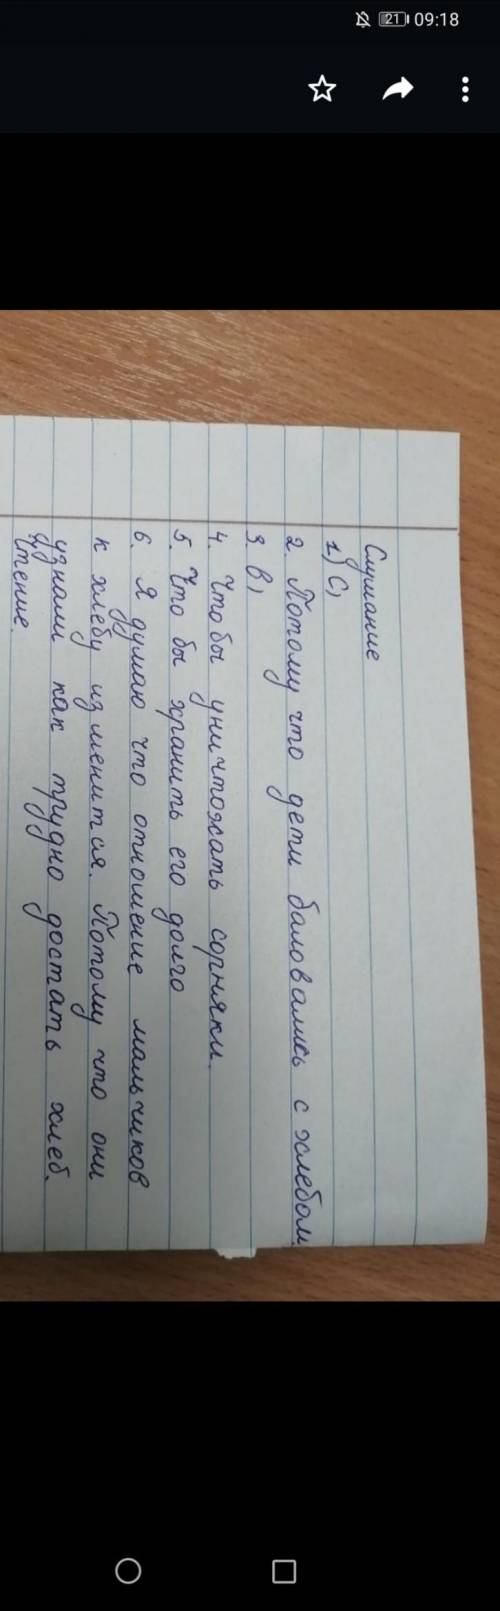 21 09:18
Слушание
1) С,
2. Потому что дети баловались с хлебом.
3. В,
4. Что бы уничтожать сорняки.
5. Что бы хранить его долго
6. Я думаю что отношение мальчиков
к хлебу изменится. Потому что они
узнали как трудно достать хлеб.
Чтение.